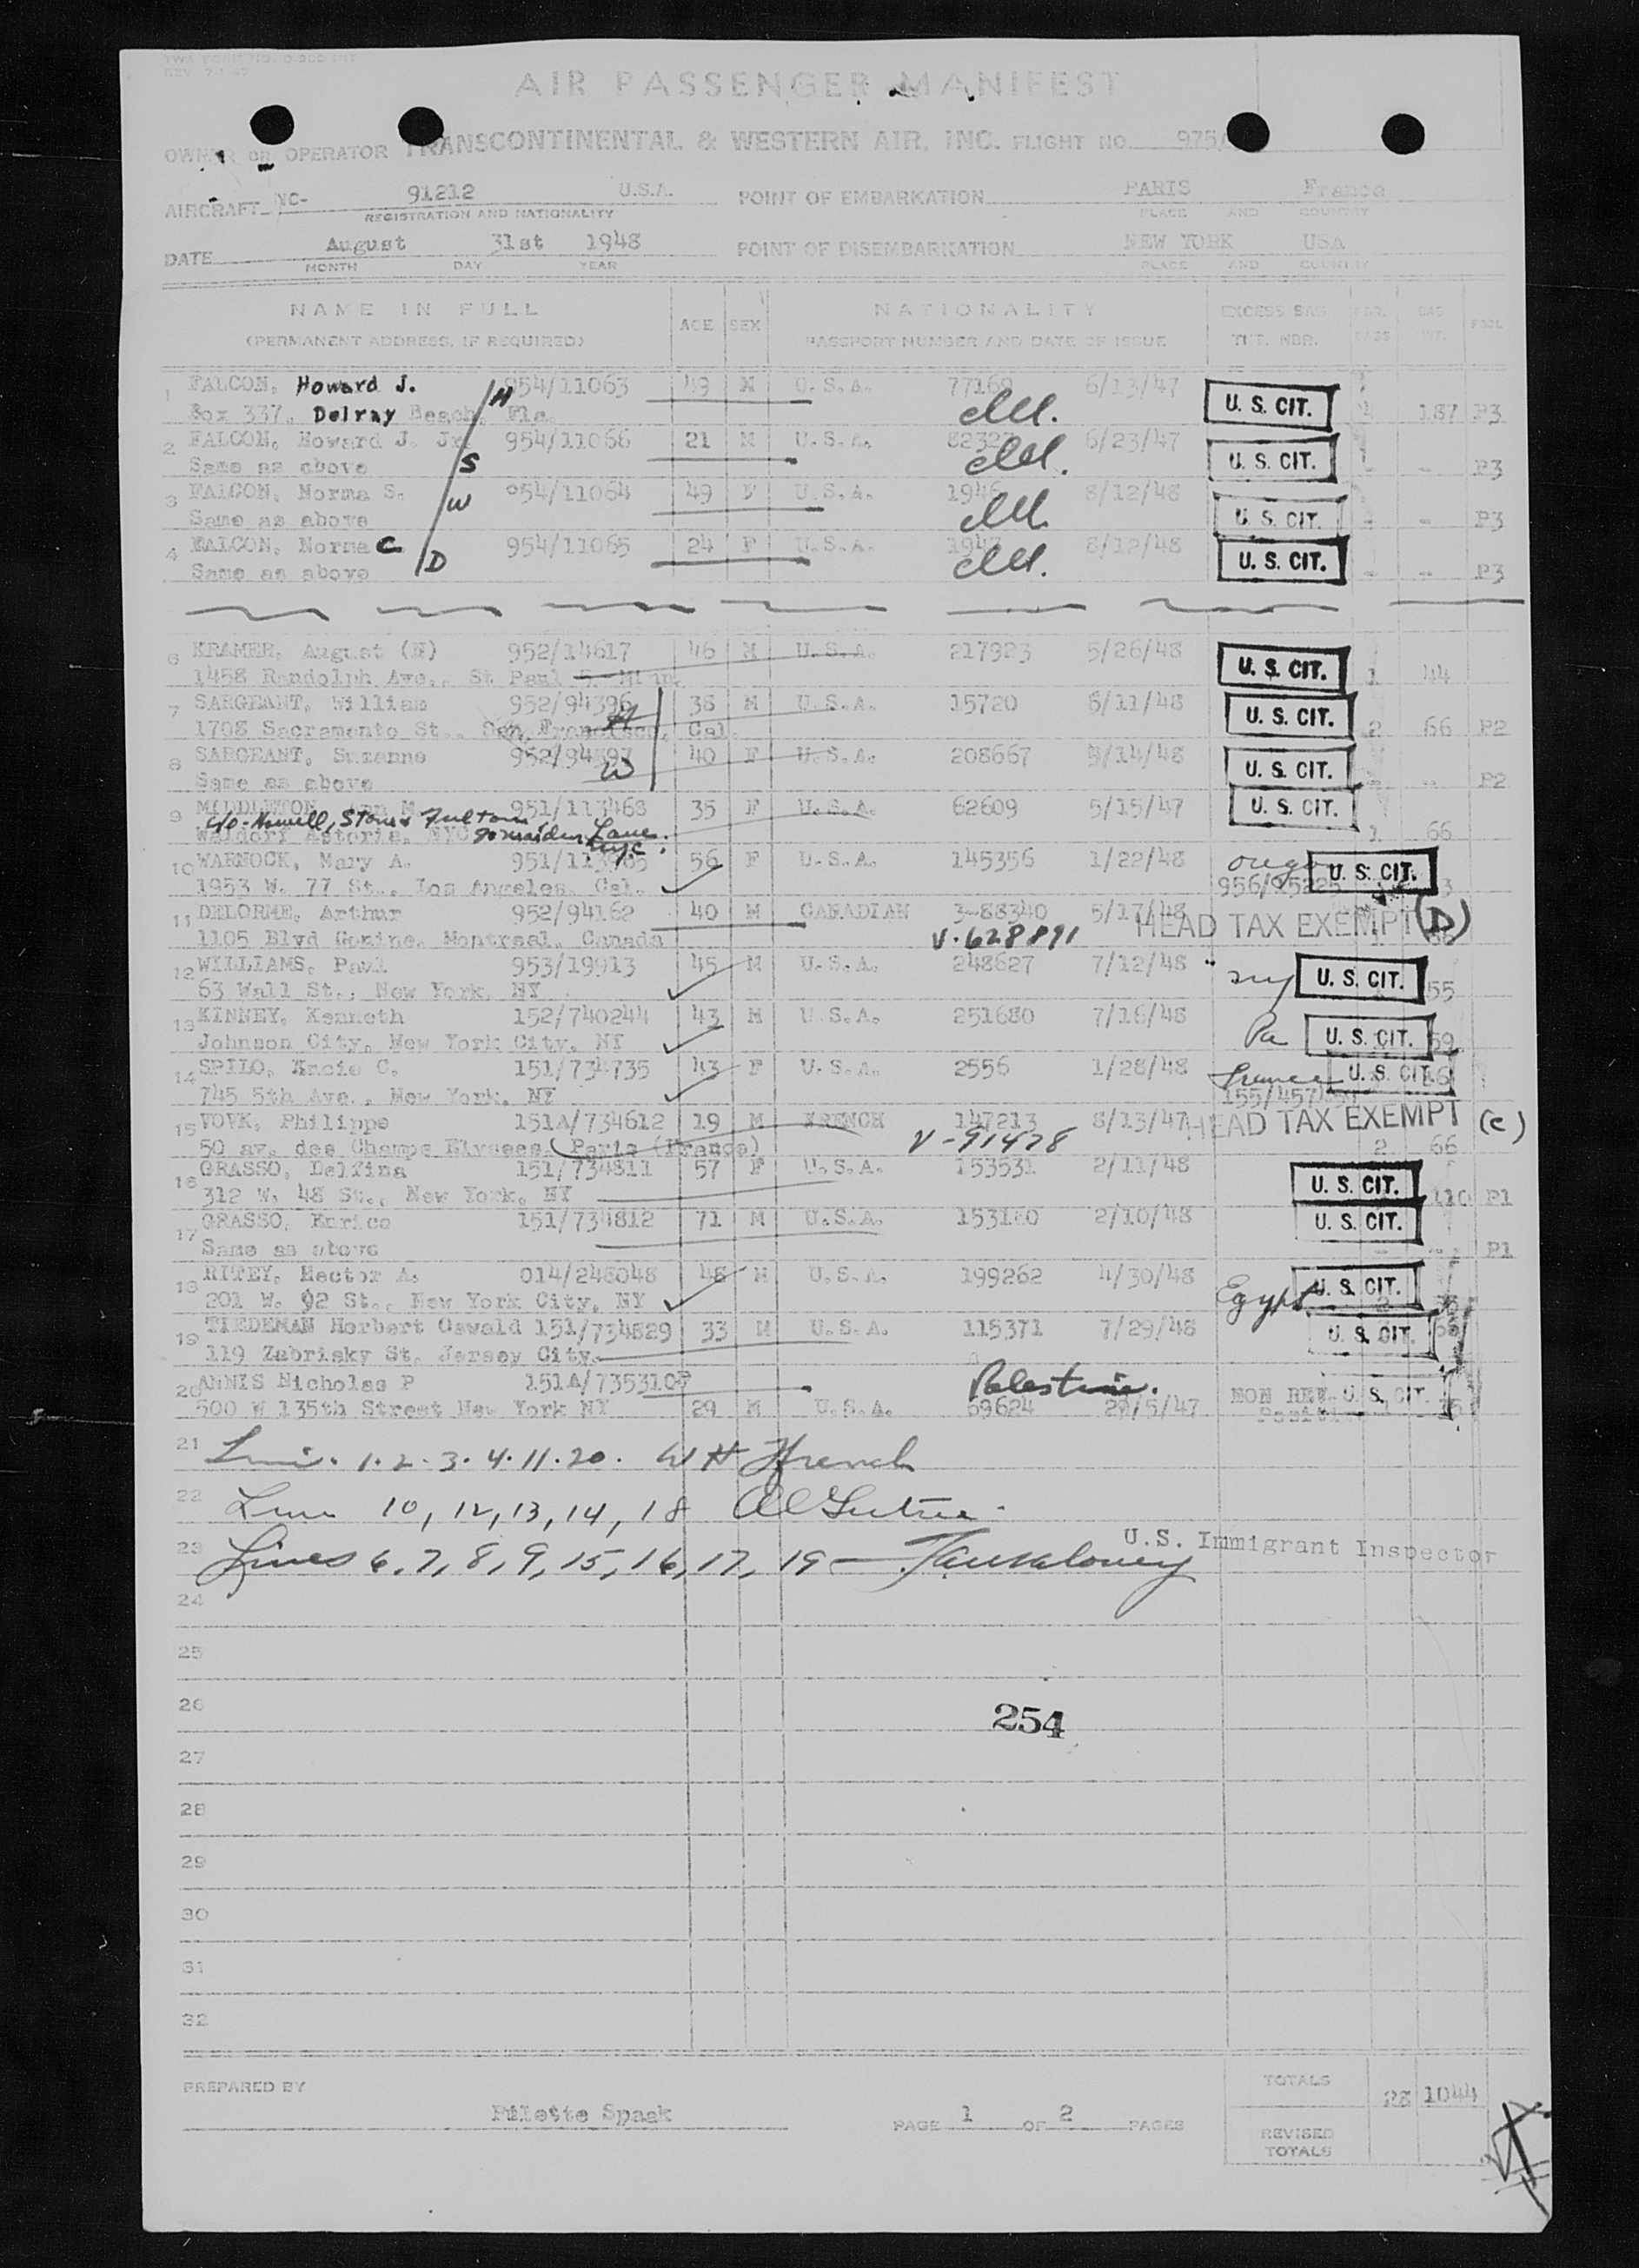 AIR PASSENGER MANIFEST
OWNER OR OPERATOR TRANSCONTINENTAL & WESTERN AIR, INC. FLIGHT NO. 975/
AIRCRAFT NC- 91212 U.S.A. POINT OF EMBARKATION PARIS France
REGISTRATION AND NATIONALITY PLACE AND COUNTRY
DATE August 31st 1948 POINT OF DISEMBARKATION NEW YORK USA
MONTH DAY YEAR PLACE AND COUNTRY
NAME IN FULL AGE SEX NATIONALITY EXCESS BAG
(PERMANENT ADDRESS, IF REQUIRED) PASSPORT NUMBER AND DATE OF ISSUE TKT. NBR.
1 FALCON, Howard J. H 954/11063 49 M U.S.A. 6/13/47 U. S. CIT.
Box 337, Delray Beach, Fla. 187 P3
2 FALCON, Howard J. Jr. 954/11066 21 M U.S.A. 6/23/47 U. S. CIT.
Same as above S - - P3
3 FALCON, Norma S. W 954/11064 49 F U.S.A. 8/12/48 U. S. CIT.
Same as above - - P3
4 FALCON, Norma C 954/11065 24 F U.S.A. 8/12/48 U. S. CIT.
Same as above D - - P3
6 KRAMER, August (N) 952/14617 46 M U.S.A. 217923 5/26/48 U. S. CIT.
1458 Randolph Ave., St Paul 1 44
7 SARGEANT, William 952/94396 38 M U.S.A. 15720 6/11/48 U. S. CIT.
1798 Sacramento St., San Francisco, Cal. H 2 66 P2
8 SARGEANT, Suzanne 952/94397 40 F U.S.A. 208667 U. S. CIT.
Same as above W - - P2
9 MIDDLETON, 951/113468 35 F U.S.A. 62609 5/15/47 U. S. CIT.
Waldorf Astoria, NYC 66
10 WARNOCK, Mary A. 56 F U.S.A. 145356 1/22/48 U. S. CIT.
1953 W. 77 St., Los Angeles, Cal.
11 DELORME, Arthur 952/94162 40 M CANADIAN 3-88340 5/17/48 HEAD TAX EXEMPT (D)
1105 Blvd Gomine, Montreal, Canada V-628891
12 WILLIAMS, Paul 953/19913 45 M U.S.A. 248627 7/12/48 ny U. S. CIT.
63 Wall St., New York, NY 55
13 KINNEY, Kenneth 152/740244 43 M U.S.A. 251680 7/16/48 Pa U. S. CIT.
Johnson City, New York City, NY 59
14 SPILO, C. 151/734735 43 F U.S.A. 2556 1/28/48 U. S. CIT.
745 5th Ave., New York, NY
15 VOVK, Philippe 151A/734612 19 M FRENCH 147213 8/13/47 HEAD TAX EXEMPT (C)
50 av. des Champs Elysees, Paris (France) V-91478 2 66
16 GRASSO, Delfina 151/734811 57 F U.S.A. 153531 2/11/48 U. S. CIT.
312 W. 48 St., New York, NY 110 P1
17 GRASSO, Enrico 151/734812 71 M U.S.A. 2/10/48 U. S. CIT.
Same as above - - P1
18 RITEY, Hector A. 014/248048 48 M U.S.A. 199262 4/30/48 Egypt U. S. CIT.
201 W. 92 St., New York City, NY
19 TIEDEMAN Herbert Oswald 151/734829 33 M U.S.A. 115371 7/29/48 U. S. CIT.
119 Zabrisky St. Jersey City.
20 ANNIS Nicholas P 151A/735310 Palestine. NON REV. U. S. CIT.
500 W 135th Street New York NY 29 M U.S.A. 69624
21 1. 2. 3. 4. 11. 20. W H French
22 Line 10, 12, 13, 14, 18
U.S. Immigrant Inspector
23 Lines 6, 7, 8, 9, 15, 16, 17, 19 —
24
25
26
254
27
28
29
30
31
32
PREPARED BY Pilette Spaak PAGE 1 OF 2 PAGES TOTALS 28 1044
REVISED TOTALS